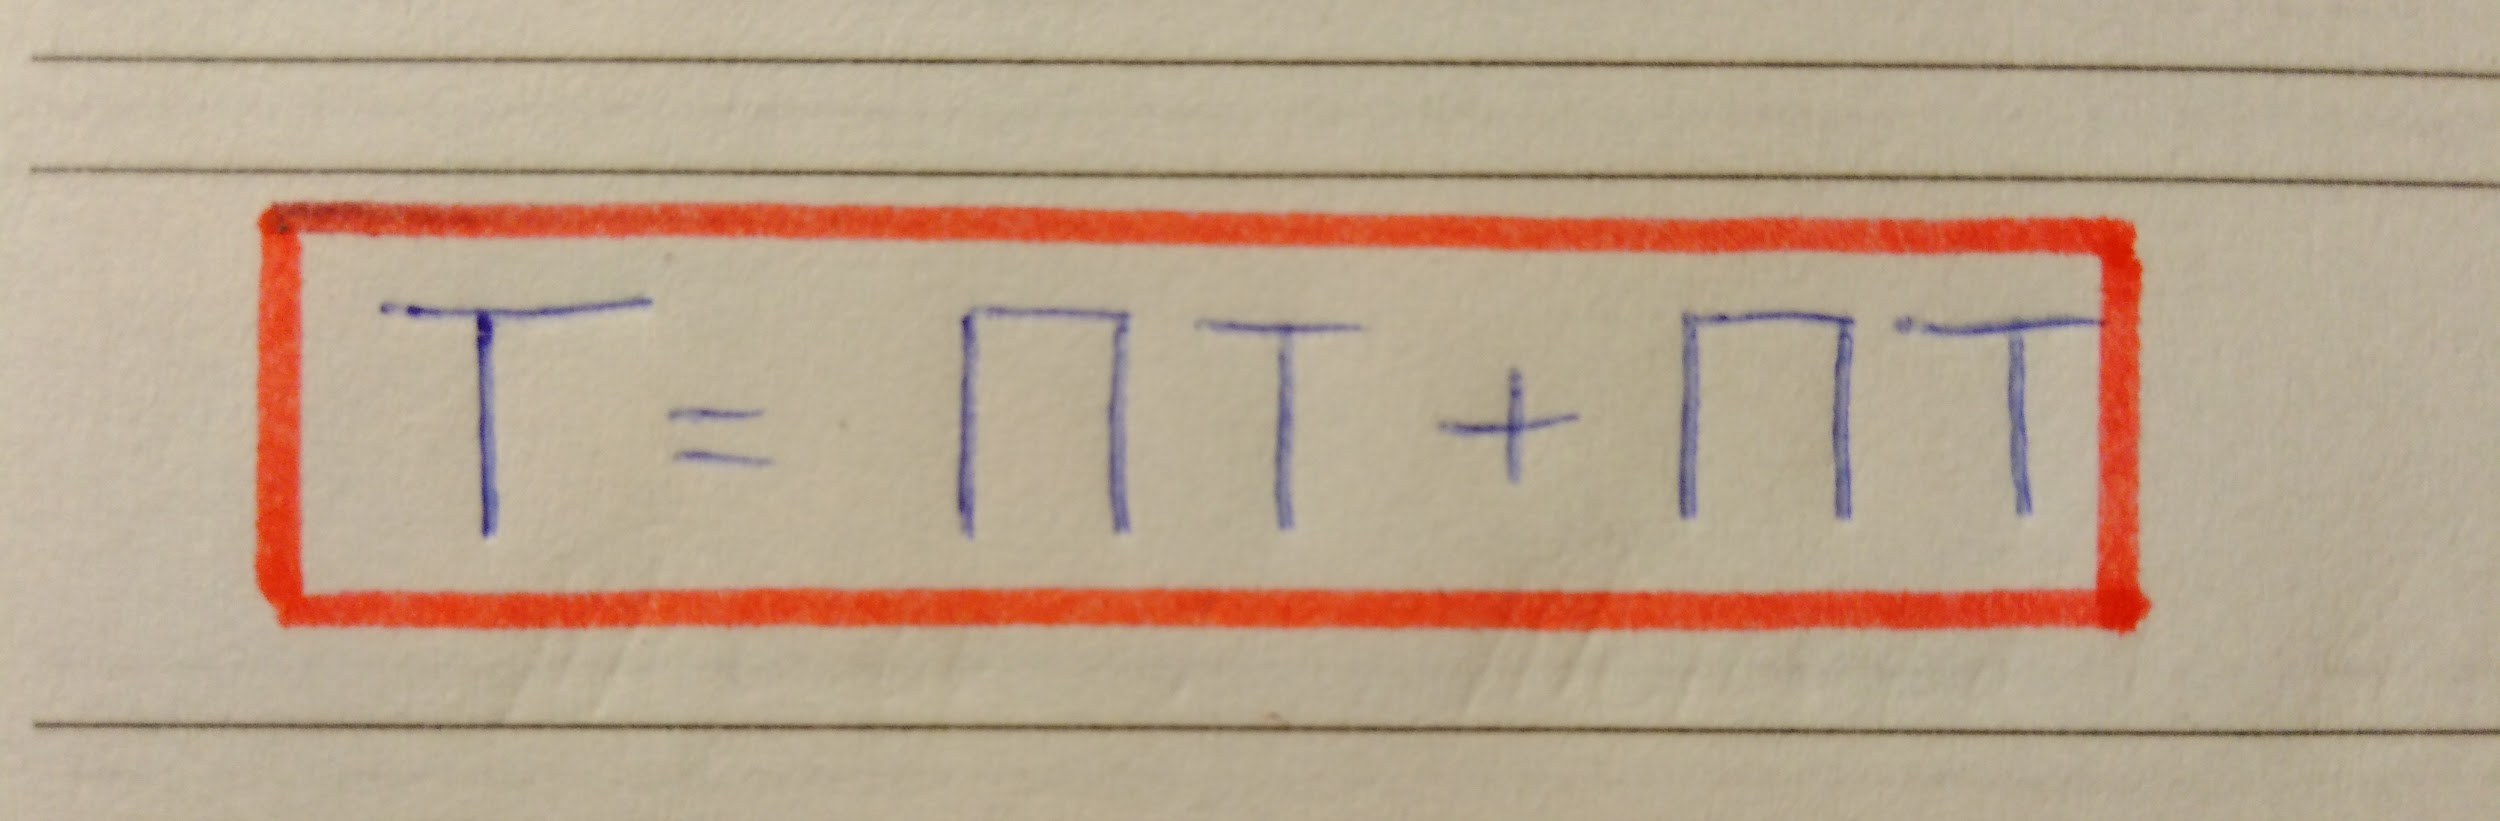 Т = ПТ + ПТ